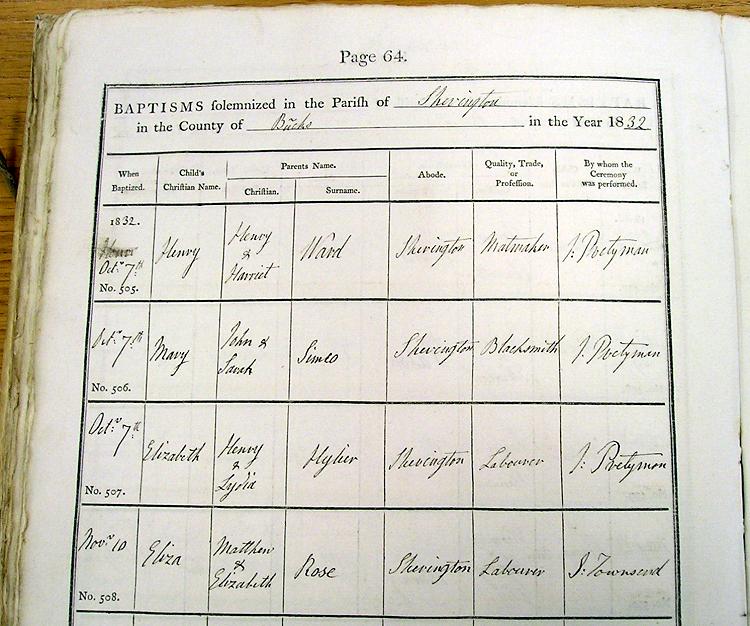 Page 64.
BAPTISMS solemnized in the Parish of Sherington
in the County of Bucks in the Year 1832
When Baptized.
Child's Christian Name.
Parents Name.
Christian.
Surname.
Abode.
Quality, Trade, or Profession.
By whom the Ceremony was performed.
1832.
Octr. 7th
No. 505.
Henry
Henry & Harriet
Ward
Sherington
Matmaker
J. Pretyman
Octr. 7th
No. 506.
Mary
John & Sarah
Simco
Sherington
Blacksmith
J. Pretyman
Octr. 7th
No. 507.
Elizabeth
Henry & Lydia
Sherington
Labourer
J. Pretyman
Novr. 10
No. 508.
Eliza
Matthew & Elizabeth
Rose
Sherington
Labourer
J. Townsend